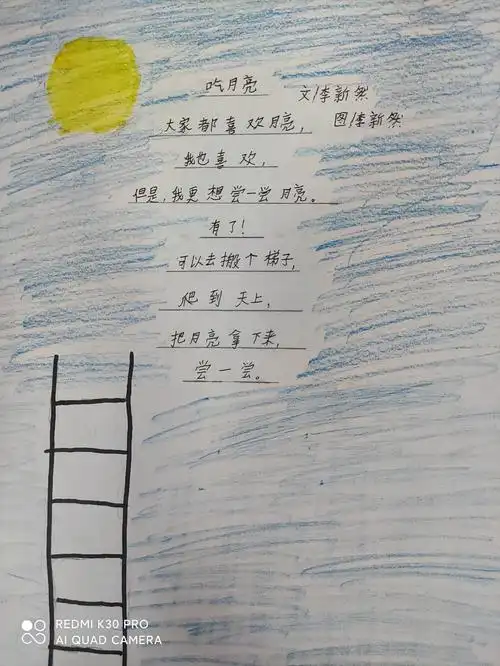 吃月亮
文/李新然
大家都喜欢月亮，
图/李新然
我也喜欢，
但是，我更想尝一尝月亮。
有了！
可以去搬个梯子，
爬到天上，
把月亮拿下来，
尝一尝。
REDMI K30 PRO
AI QUAD CAMERA